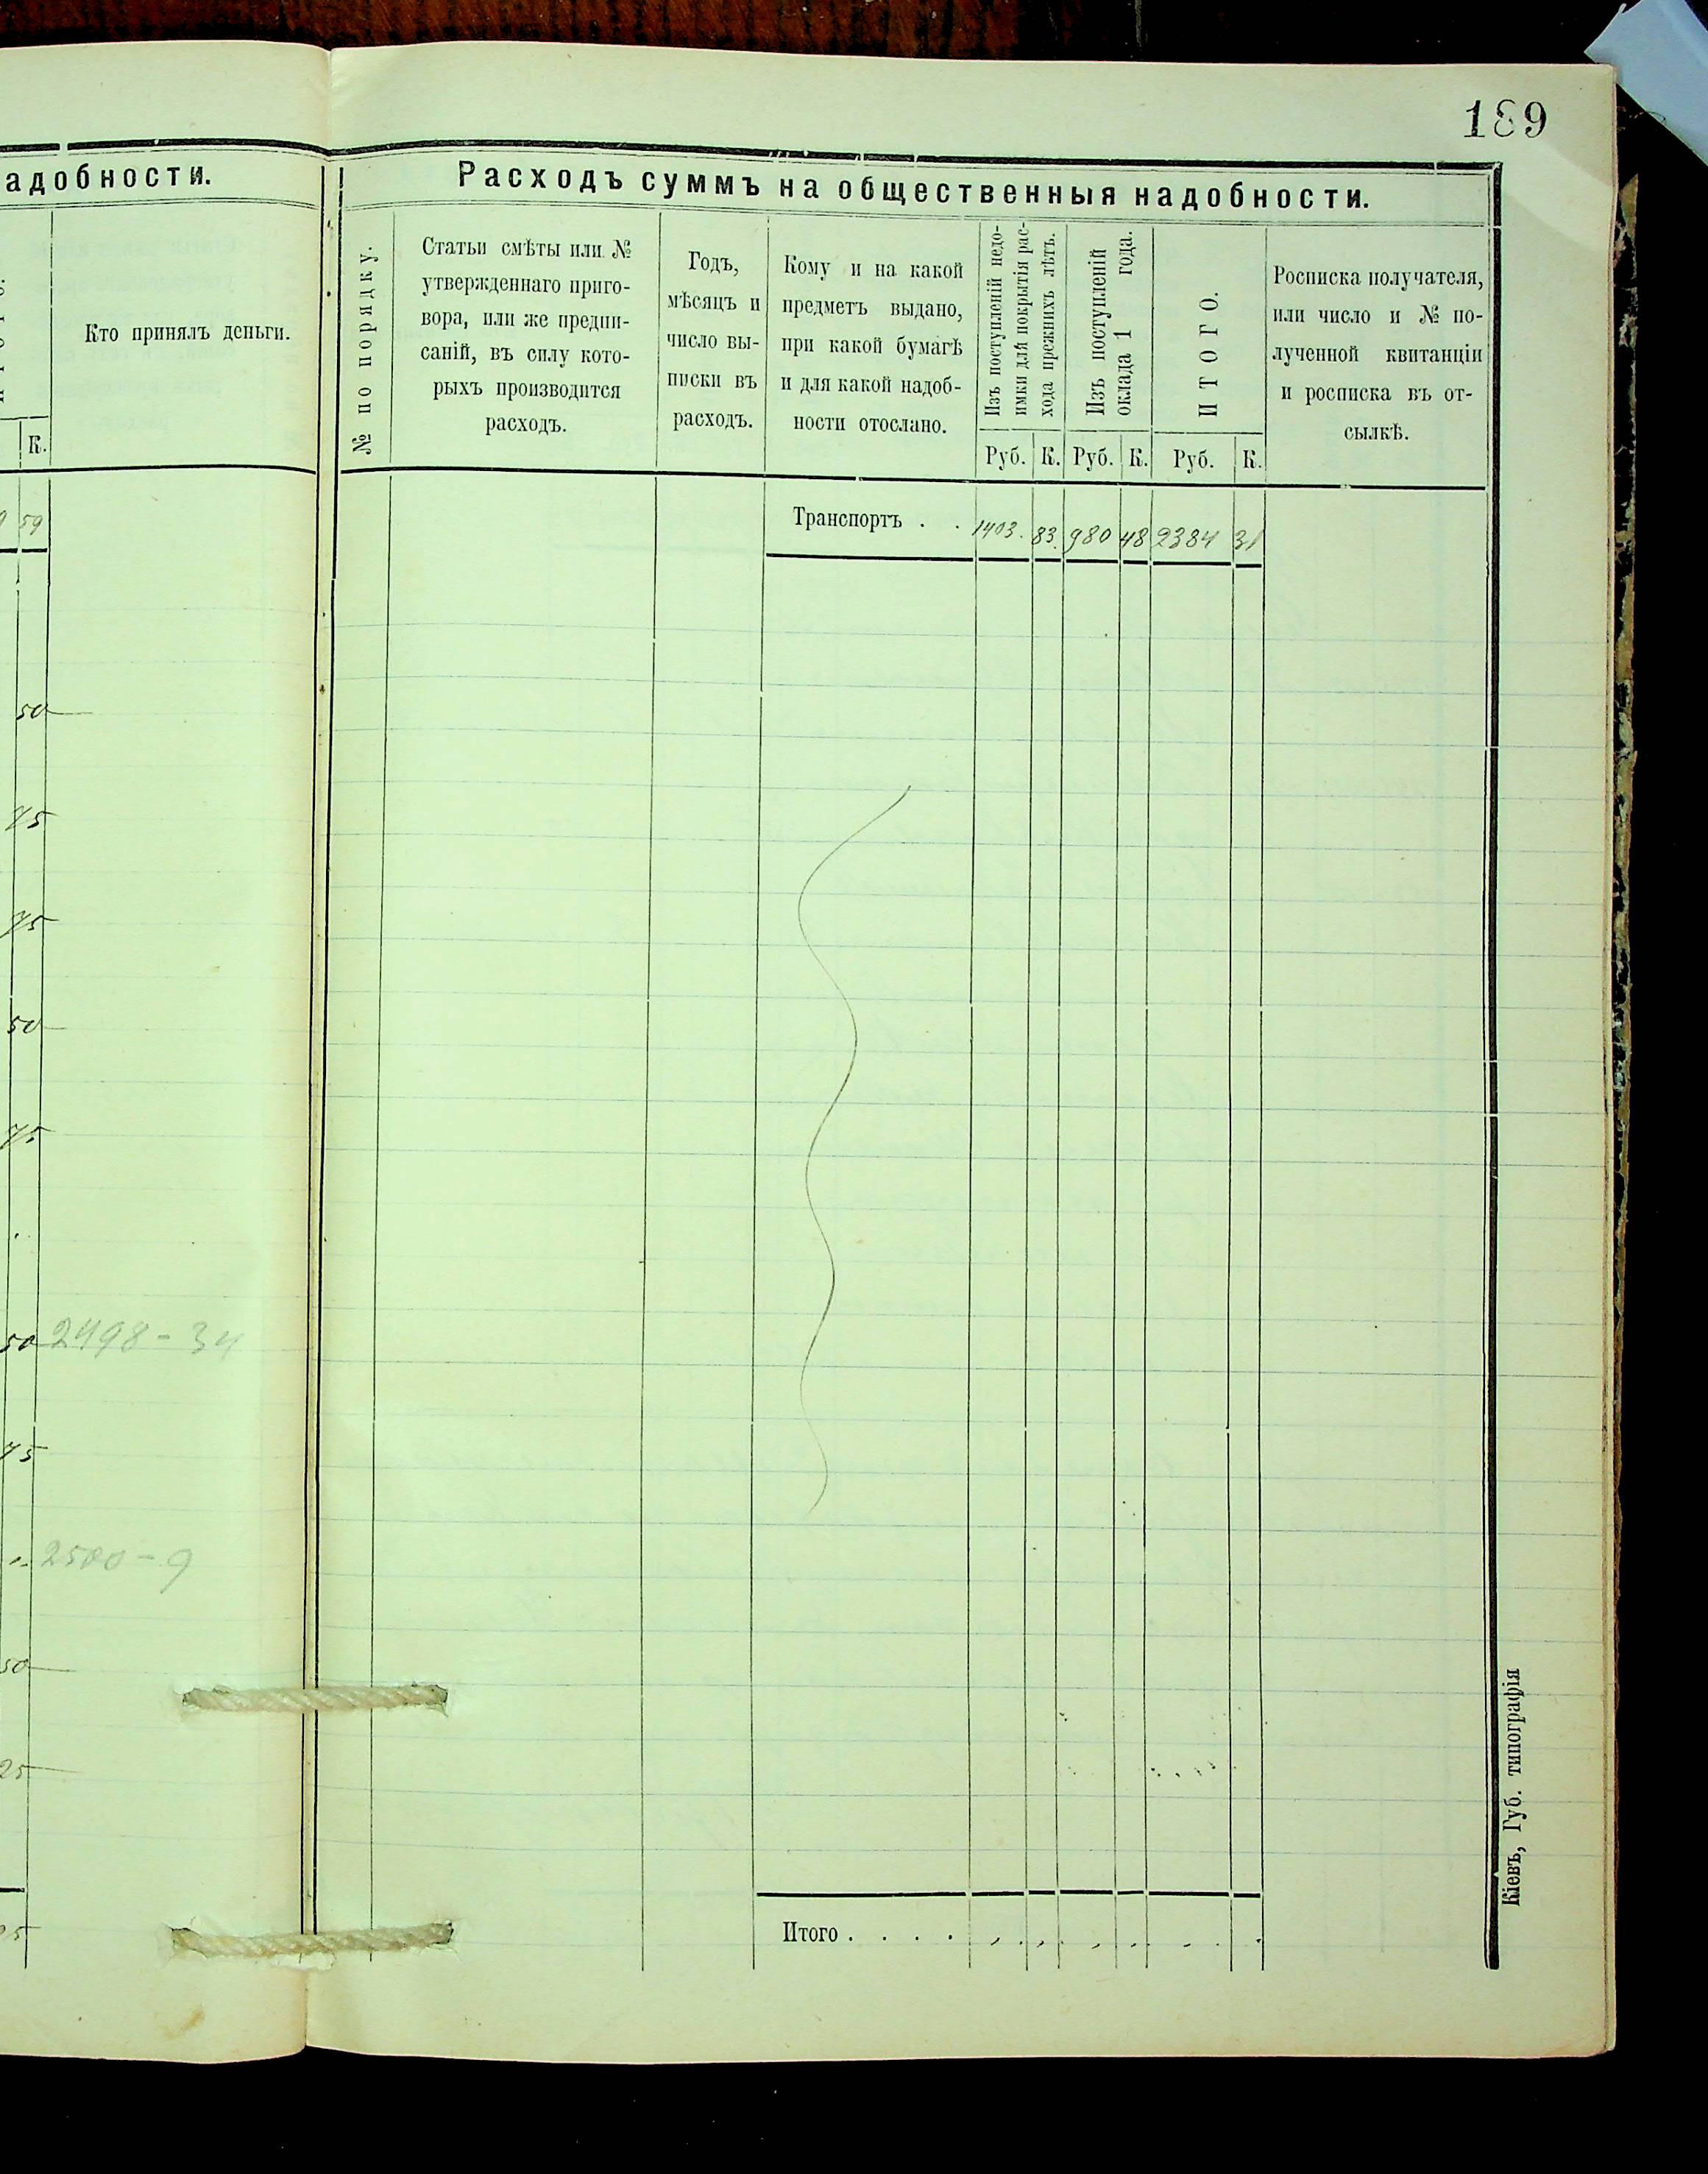 189
адобности.
Кто принялъ деньги.
К.
59
50
75
75
50
75
50 2498 - 34
75
2500 - 9
50
25
Расходъ суммъ на общественныя надобности.
№ по порядку.
Статьи смѣты или №
утвержденнаго приго-
вора, или же предпи-
саній, въ силу кото-
рыхъ производится
расходъ.
Годъ,
мѣсяцъ и
число вы-
писки въ
расходъ.
Кому и на какой
предметъ выдано,
при какой бумагѣ
и для какой надоб-
ности отослано.
Изъ поступленій недо-
имки для покрытія рас-
хода прежнихъ лѣтъ.
Изъ поступленій
оклада 1 года.
ИТОГО.
Росписка получателя,
или число и № по-
лученной квитанціи
и росписка въ от-
сылкѣ.
Руб. К. Руб. К. Руб. К.
Транспортъ . . 1403. 83. 980 48 2384 31
Итого . . . .
Кіевъ, Губ. типографія